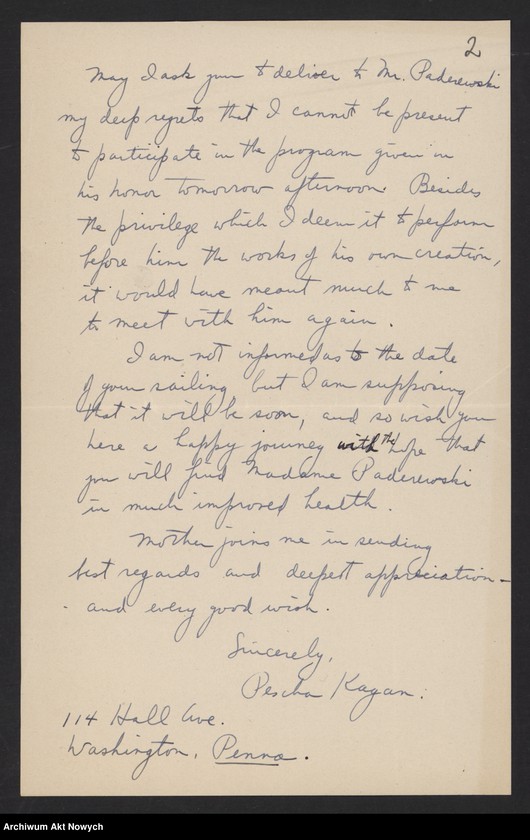 2
May I ask you to deliver to Mr. Paderewski
my deep regrets that I cannot be present
to participate in the program given in
his honor tomorrow afternoon. Besides
the privilege which I deem it to perform
before him the works of his own creation,
it would have meant much to me
to meet with him again.
I am not informed as to the date
of your sailing but I am supposing
that it will be soon, and so wish you
here a happy journey with the hope that
you will find Madame Paderewski
in much improved health.
Mother joins me in sending
best regards and deepest appreciation –
- and every good wish.
Sincerely,
Pescha Kagan.
114 Hall Ave.
Washington, Penna.
Archiwum Akt Nowych